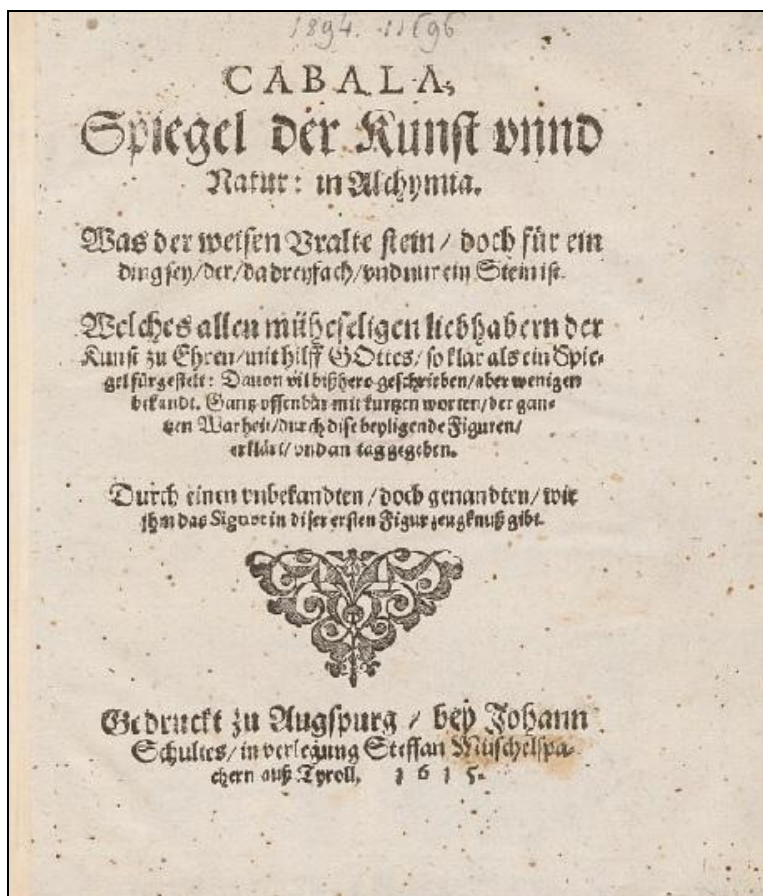 1894. 11696
CABALA,
Spiegel der Kunst vnnd
Natur: in Alchymia.
Was der weisen Vralte stein / doch für ein
ding sey/der/da dreyfach/vnd nur ein Stein ist.
Welches allen müheseligen liebhabern der
Kunst zu Ehren/mit hilff GOttes/so klar als ein Spie-
gel fürgestelt: Dauon vil bißhero geschrieben/aber wenigen
bekandt. Gantz offenbar mit kurtzen worten/der gan-
tzen Warheit/durch dise beyligende Figuren/
erklärt/vnd an tag gegeben.
Durch einen vnbekandten / doch genandten / wie
ihm das Signet in diser ersten Figur zeugknuß gibt.
Gedruckt zu Augspurg / bey Johann
Schultes/in verlegung Steffan Michelspa-
chern auß Tyroll. 1615.